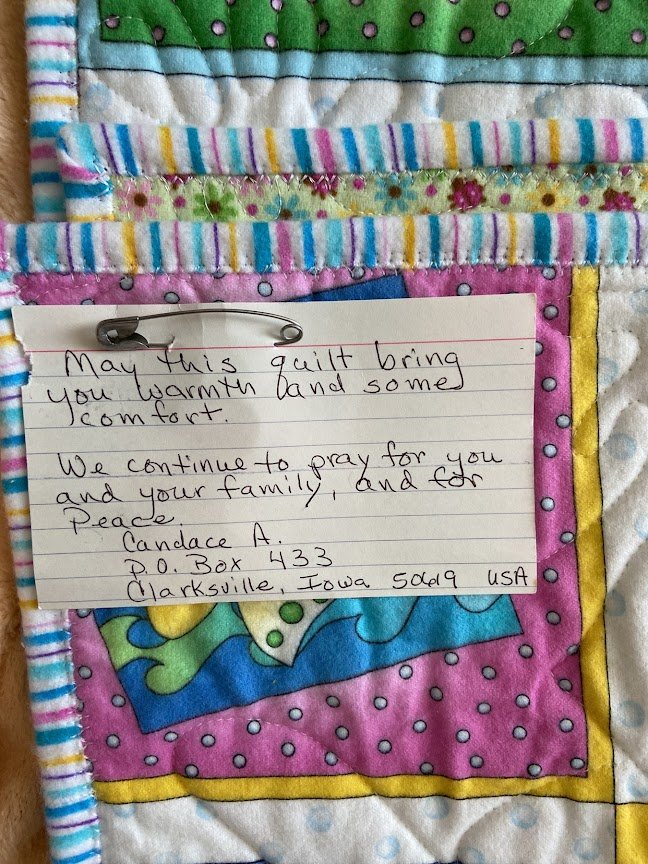 May this quilt bring
you warmth and some
comfort.
We continue to pray for you
and your family, and for
Peace.
Candace A.
P.O. Box 433
Clarksville, Iowa 50619 USA